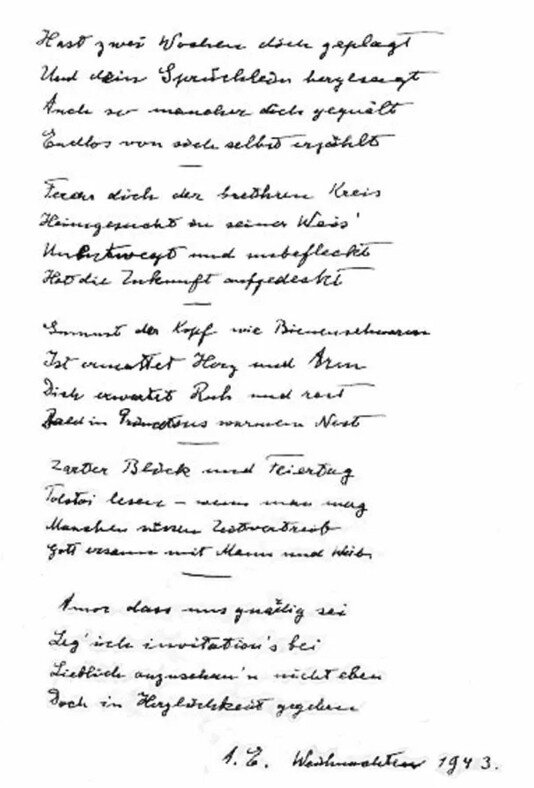 Hast zwei Wochen dich geplagt
Und dein Sprüchlein hergesagt
Auch so mancher dich gequält
Endlos von sich selbst erzählt
dich der Kreis
Heimgesucht in seiner Weis'
und unbefleckt
Hat die Zukunft aufgedeckt
Summst der Kopf wie Bienenschwarm
Ist ermattet Herz und Arm
Dich erwartet Ruh und rast
Bald in Princetons warmem Nest
Zarter Blick und Feiertag
Tolstoi lesen – wenn man mag
Manchen süssen Zeitvertreib
Gott ersann mit Mann und Weib.
Amor dass uns gnädig sei
Leg' ich invitation's bei
Lieblich anzuschau'n nicht eben
Doch in Herzlichkeit gegeben
A. E. Weihnachten 1943.